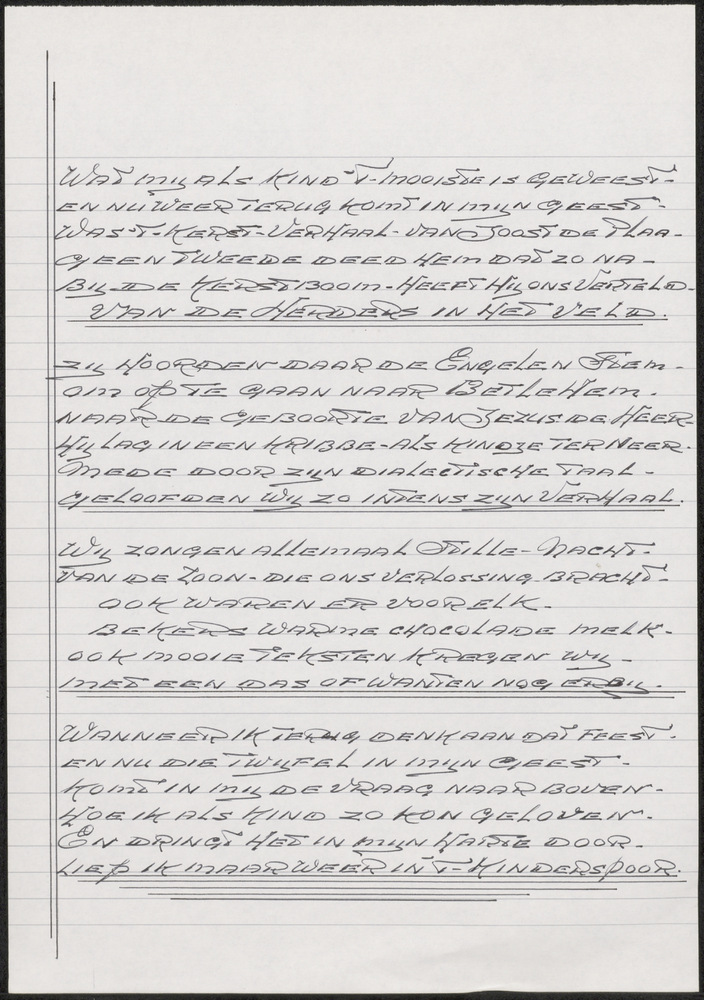 WAT MIJ ALS KIND 'T-MOOISTE IS GEWEEST-
EN NU WEER TERUG KOMT IN MIJN GEEST-
WAS 'T-KERST-VERHAAL-VAN JOOST DE PLAA-
GEEN TWEEDE DEED HEM DAT ZO NA-
BIJ-DE KERSTBOOM-HEEFT HIJ ONS VERTELD-
VAN DE HERDERS IN HET VELD.
ZIJ HOORDEN DAAR DE ENGELEN STEM-
OM OP TE GAAN NAAR BETLEHEM.
NAAR-DE GEBOORTE VAN JEZUS DE HEER-
HIJ LAG IN EEN KRIBBE-ALS KINDJE TER NEER.
MEDE DOOR ZIJN DIALECTISCHE TAAL-
GELOOFDEN WIJ ZO INTENS ZIJN VERHAAL.
WIJ ZONGEN ALLEMAAL STILLE-NACHT-
VAN DE ZOON-DIE ONS VERLOSSING BRACHT-
OOK WAREN ER VOOR ELK-
BEKERS WARME CHOCOLADE MELK-
OOK MOOIE TEKSTEN KREGEN WIJ-
MET EEN DAS OF WANTEN NOG ERBIJ.
WANNEER IK TERUG DENK AAN DAT FEEST-
EN NU DIE TWIJFEL IN MIJN GEEST-
KOMT IN MIJ DE VRAAG NAAR BOVEN-
HOE IK ALS KIND ZO KON GELOVEN-
EN DRINGT HET IN MIJN HARTE DOOR-
LIEP IK MAAR WEER IN 'T-KINDERSPOOR.